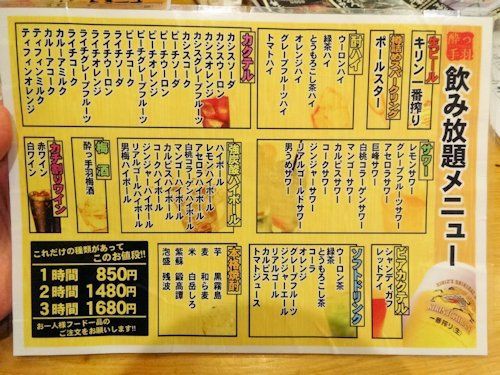 酔っ手羽
飲み放題メニュー
生ビール
キリン一番搾り
樽詰めスパークリング
ポールスター
酎ハイ
ウーロンハイ
緑茶ハイ
とうもろこし茶ハイ
オレンジハイ
グレープフルーツハイ
トマトハイ
カクテル
カシスソーダ
カシスウーロン
カシスオレンジ
カシスグレープフルーツ
カシスコーク
ピーチソーダ
ピーチウーロン
ピーチオレンジ
ピーチグレープフルーツ
ピーチコーク
ライチソーダ
ライチウーロン
ライチオレンジ
ライチグレープフルーツ
ライチコーク
カルーアミルク
カルーアコーク
ティフィンミルク
ティフィンオレンジ
サワー
レモンサワー
グレープフルーツサワー
アセロラサワー
巨峰サワー
白桃コラーゲンサワー
マンゴーサワー
カルピスサワー
コークサワー
ジンジャーサワー
リアルゴールドサワー
男うめサワー
強炭酸ハイボール
ハイボール
アセロラハイボール
白桃コラーゲンハイボール
マンゴーハイボール
カルピスハイボール
コークハイボール
ジンジャーハイボール
リアルゴールハイボール
男梅ハイボール
梅酒
酔っ手羽梅酒
カチ割りワイン
赤ワイン
白ワイン
ビアカクテル
シャンディガフ
レッドアイ
ソフトドリンク
ウーロン茶
緑茶
とうもろこし茶
コーラ
オレンジ
グレープフルーツ
ジンジャエール
カルピス
リアルゴールド
トマトジュース
本格焼酎
芋 黒霧島
麦 和ら麦
米 白岳しろ
紫蘇 鍛高譚
泡盛 残波
これだけの種類があって
このお値段!!
1時間 850円
2時間 1480円
3時間 1680円
お一人様フード一品の
ご注文をお願いします!!
KIRIN ICHIBAN
一番搾り 生